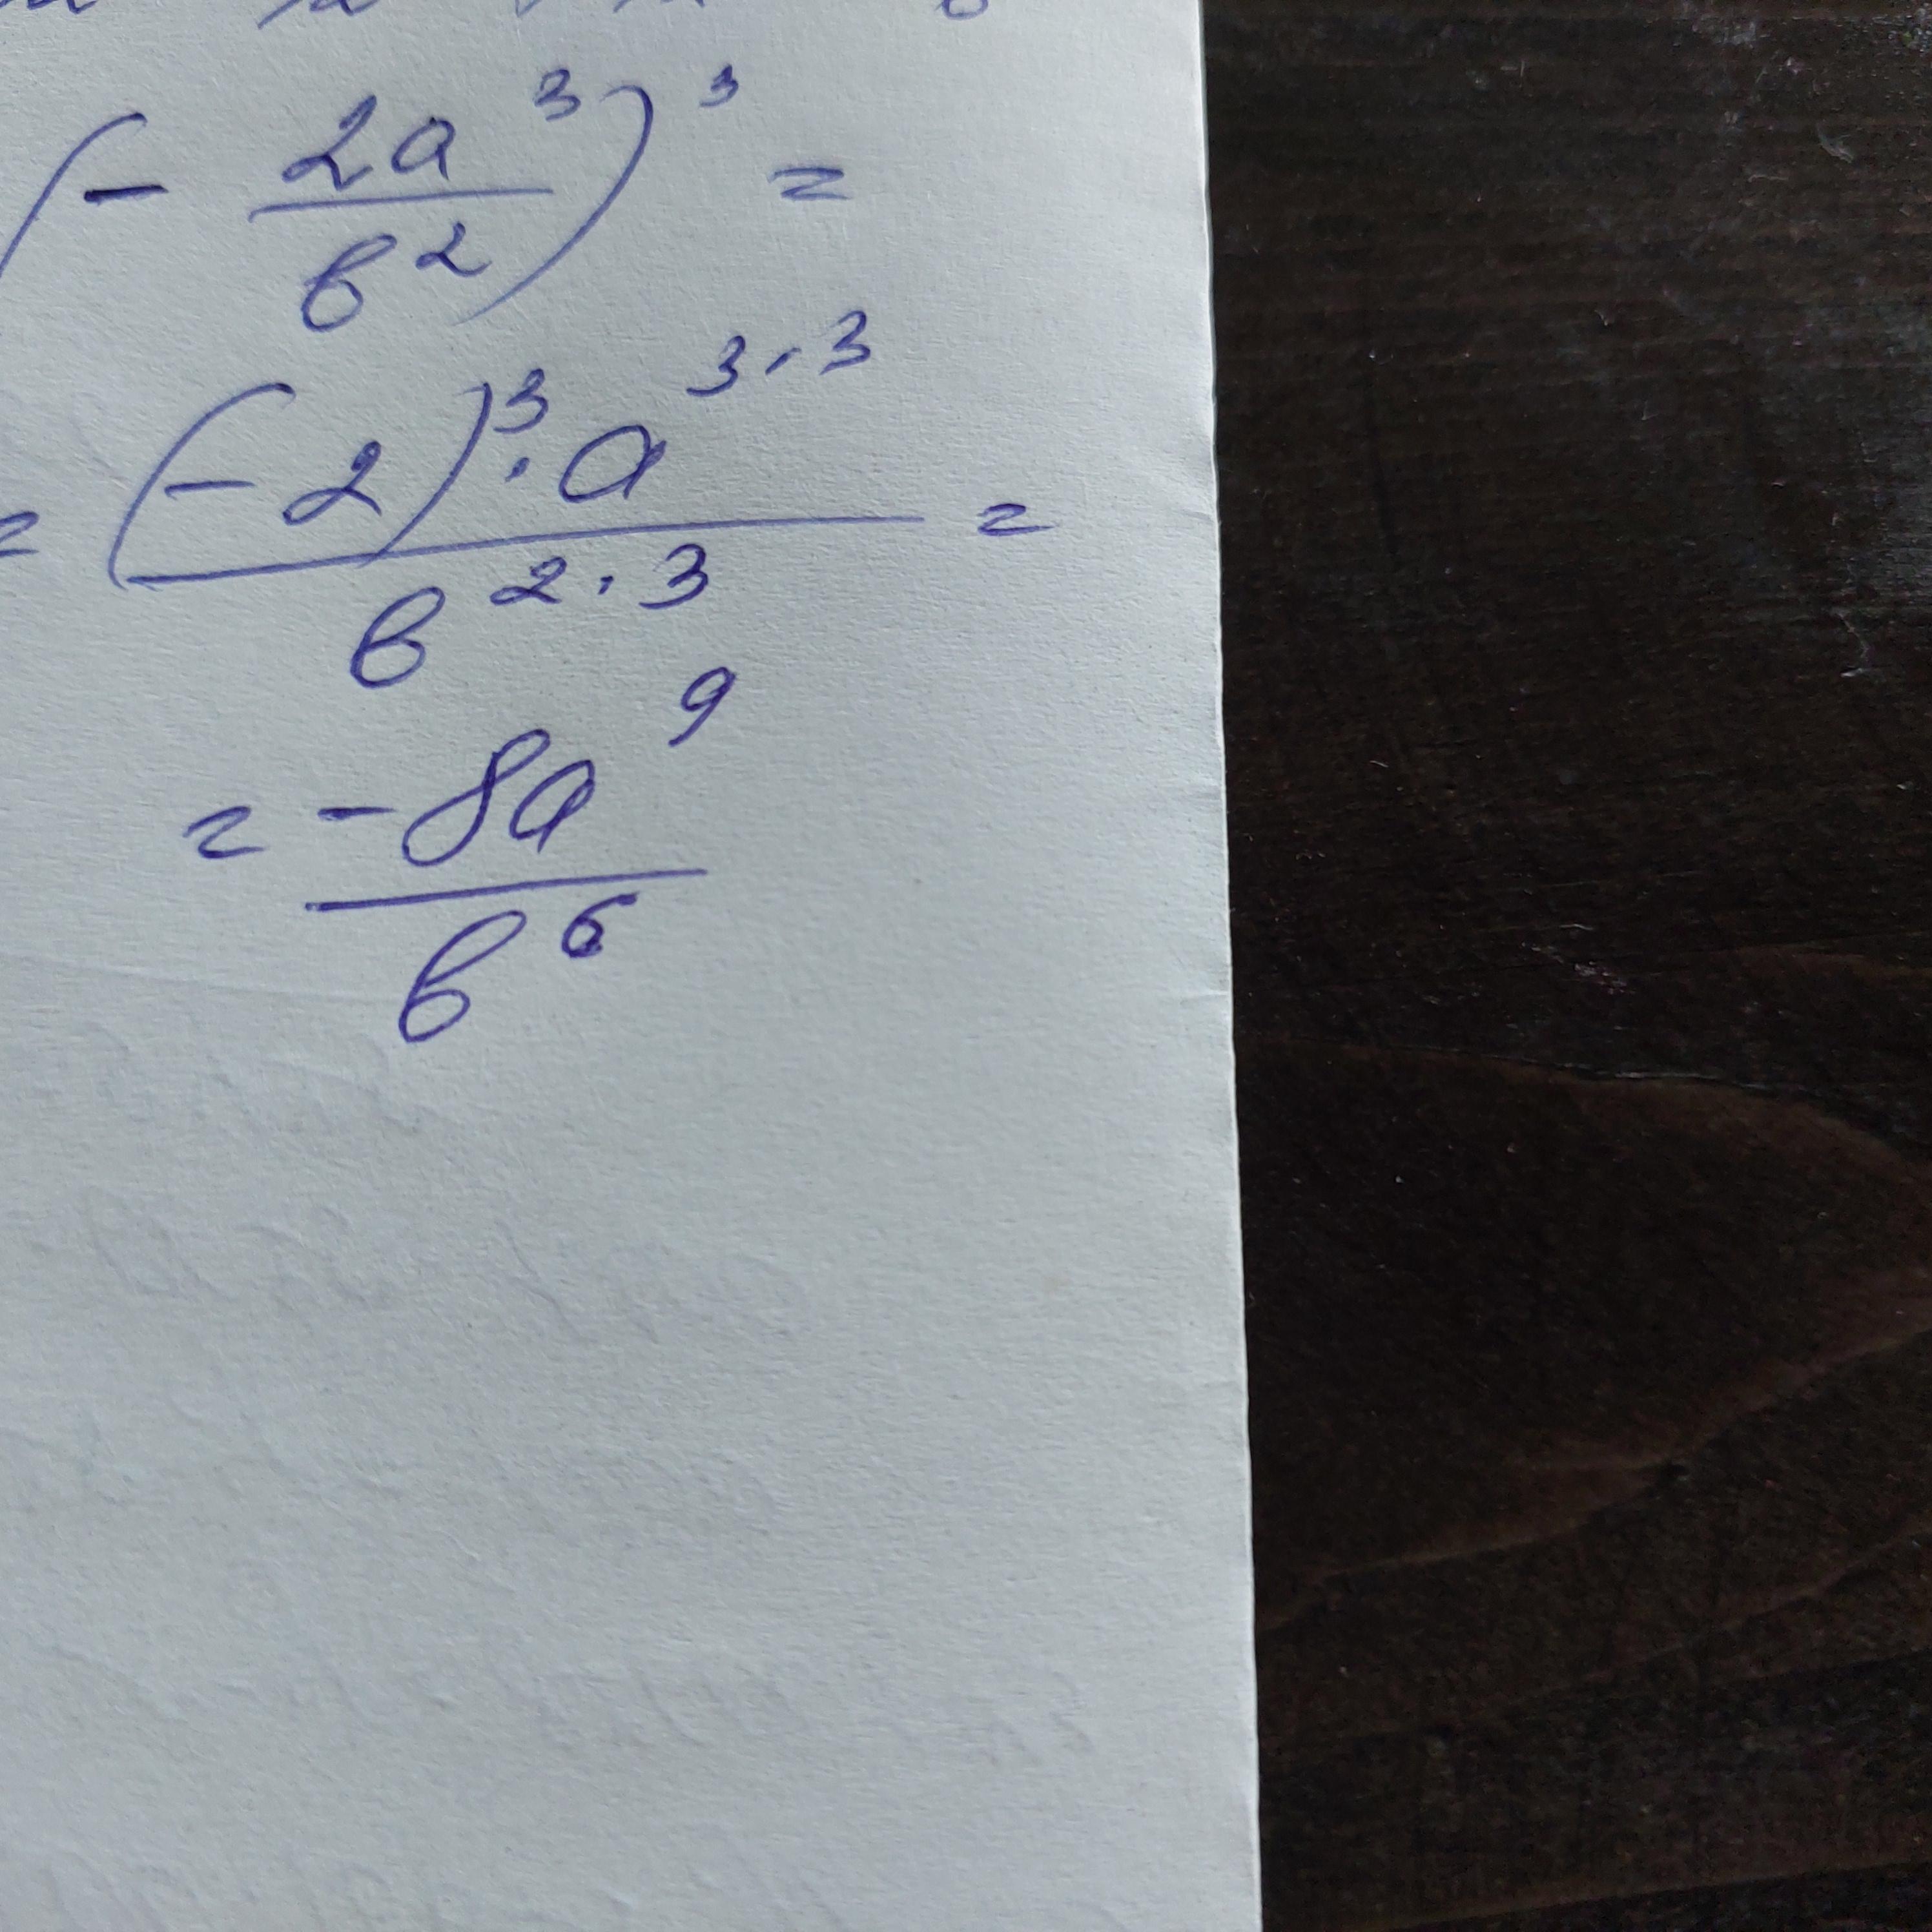 (- 2a³/b²)³ =
= (-2)³·a³·³/b²·³ =
= -8a⁹/b⁶